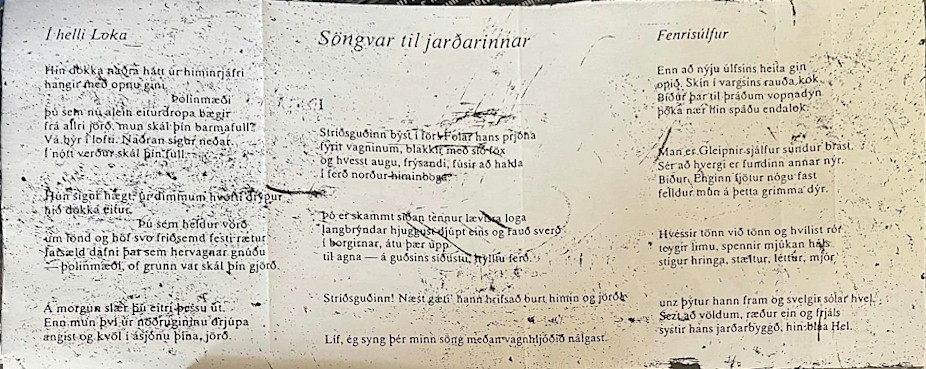 Í helli Loka
Hin dökka naðra hátt úr himinrjáfri
hangir með opnu gini.
Þolinmæði
þú sem nú alein eiturdropa bægir
frá allri jörð, mun skál þín barmafull?
Vá býr í lofti. Naðran sígur neðar.
Í nótt verður skál þín full.
Hún sígur hægt: úr dimmum hvofti drýpur
hið dökka eitur.
Þú sem heldur vörð
um lönd og höf svo friðsemd festi rætur
farsæld dafni þar sem hervagnar gnúðu
þolinmæði, of grunn var skál þín gjörð.
Á morgun slær þú eitri þessu út.
Enn mun því úr nöðrugininu drjúpa
angist og kvöl í ásjónu þína, jörð.
Söngvar til jarðarinnar
I
Stríðsguðinn býst í för. Folar hans prjóna
fyrir vagninum, blakkir með síð föx
og hvesst augu, frýsandi, fúsir að halda
í ferð norður himinboga.
Þó er skammt síðan tennur lævísra loga
langbrýndar hjuggust djúpt eins og rauð sverð
í borgirnar, átu þær upp
til agna — á guðsins síðustu, trylltu ferð.
Stríðsguðinn! Næst gæti' hann hrifsað burt himin og jörð.
Líf, ég syng þér minn söng meðan vagnhljóðið nálgast.
Fenrisúlfur
Enn að nýju úlfsins heita gin
opið. Skín í vargsins rauða kok.
Bíður þar til þráðum vopnadyn
þoka nær hin spáðu endalok.
Man er Gleipnir sjálfur sundur brast.
Sér að hvergi er fundinn annar nýr.
Bíður. Enginn fjötur nógu fast
felldur mun á þetta grimma dýr.
Hvessir tönn við tönn og hvílist rór
teygir limu, spennir mjúkan háls
stígur hringa, stæltur, léttur, mjór
unz þýtur hann fram og svelgir sólar hvel.
Sezt að völdum, ræður ein og frjáls
systir hans jarðarbyggð, hin bláa Hel.